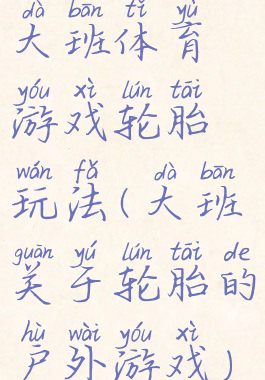 dà bān tǐ yù
大班体育
yóu xì lún tāi
游戏轮胎
wán fǎ dà bān
玩法(大班
guān yú lún tāi de
关于轮胎的
hù wài yóu xì
户外游戏)